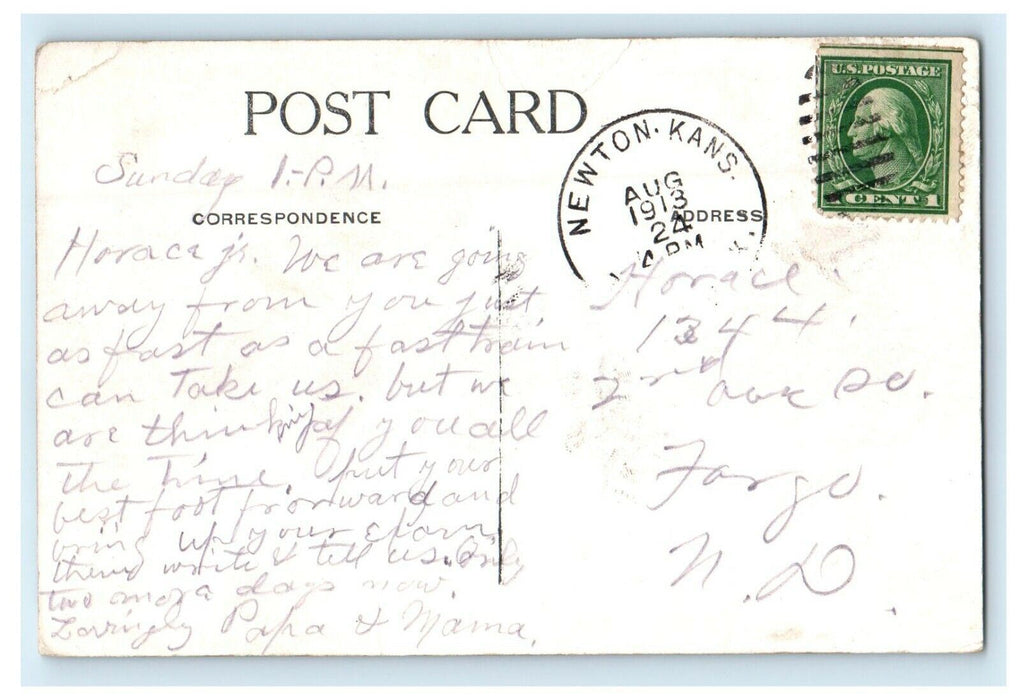 POST CARD
Sunday 1-P.M.
CORRESPONDENCE
ADDRESS
NEWTON. KANS.
AUG
1913
24
4 PM
U.S. POSTAGE
CENT 1
Horace jr. We are going
away from you just
as fast as a fast train
can Take us. but we
are thinking of you all
The Time. put your
best foot fronward and
up your exam.
then write & tell us. Only
two more days now.
Lovingly Papa & Mama.
Horace
1344.
2nd ave so.
Fargo.
N.D.